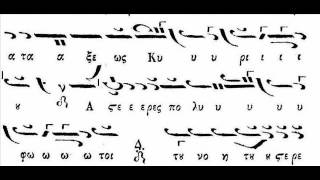 α τα α ξε ως Κυ υ υ ρι ι ι ι
ου Α ςε ε ρες πο λυ υ υ υ υ
φω ω ω ω τοι του νο η του ςε ρε